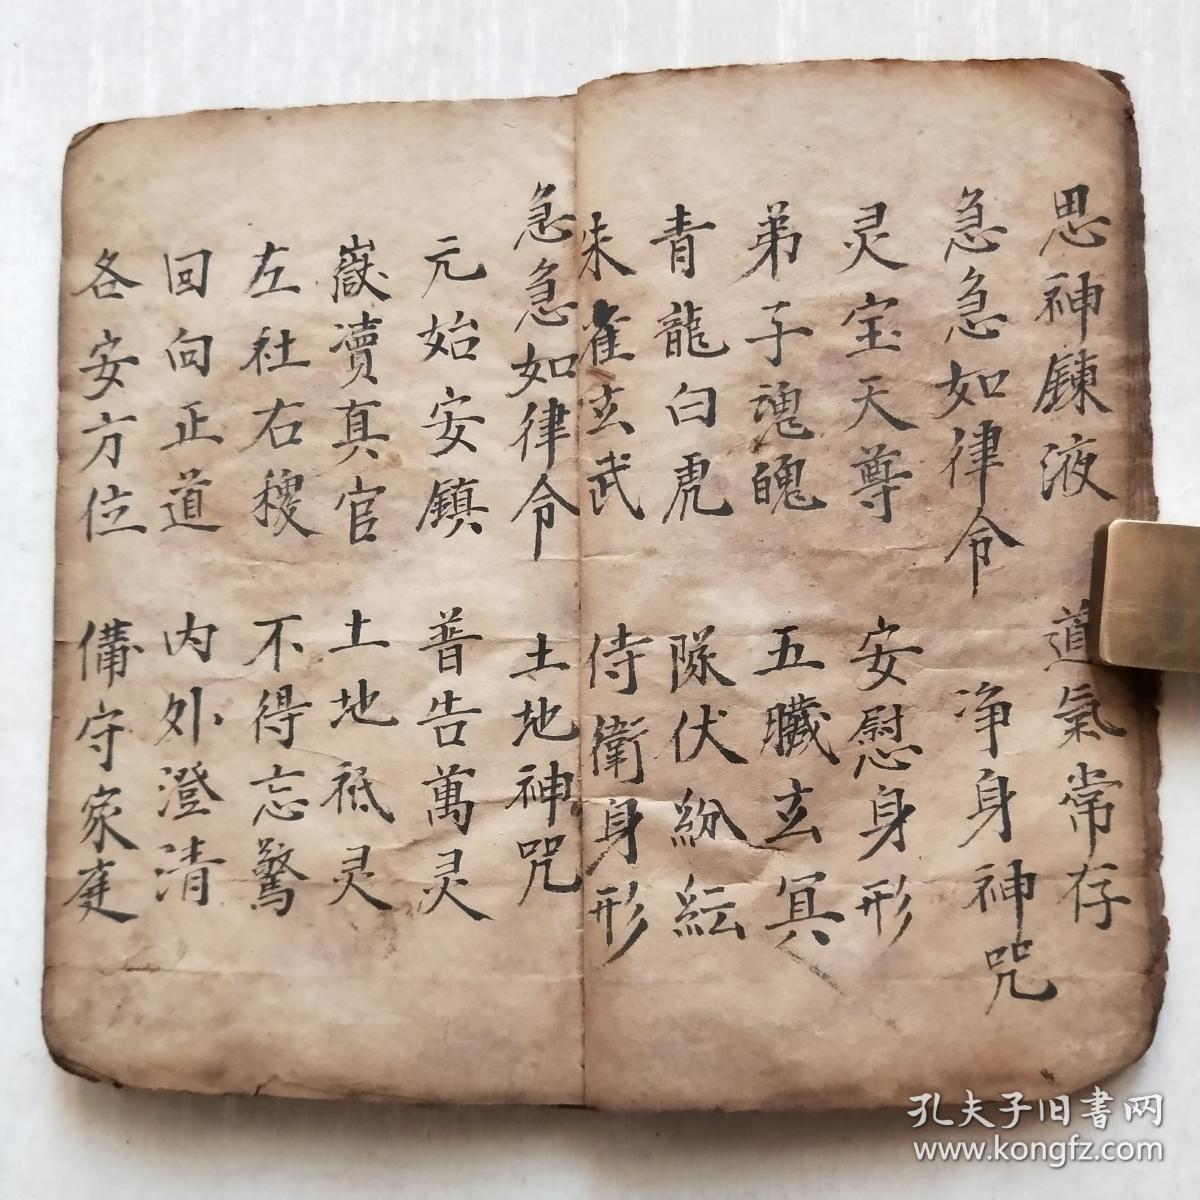 思神鍊液　道氣常存
急急如律令　净身神咒
灵宝天尊　安慰身形
弟子魂魄　五臟玄冥
青龍白虎　隊伏紛紜
朱雀玄武　侍衛身形
急急如律令　土地神咒
元始安鎮　普告萬灵
嶽瀆真官　土地祗灵
左社右稷　不得忘驚
回向正道　内外澄清
各安方位　備守家庭
孔夫子旧书网
www.kongfz.com